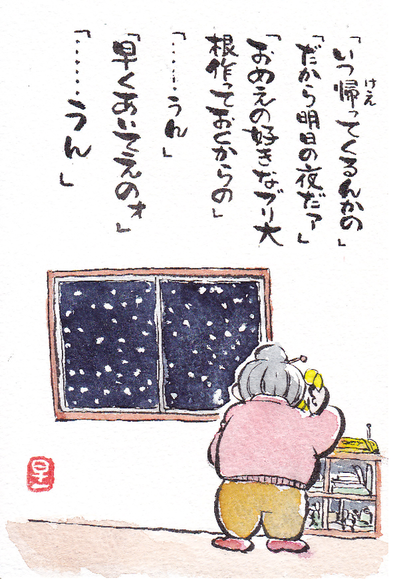 「いつ帰ってくるんかの」
けえ
「だから明日の夜だァ」
「おめえの好きなブリ大
根作っておくからの」
「……うん」
「早くあいてえのォ」
「……うん」
早